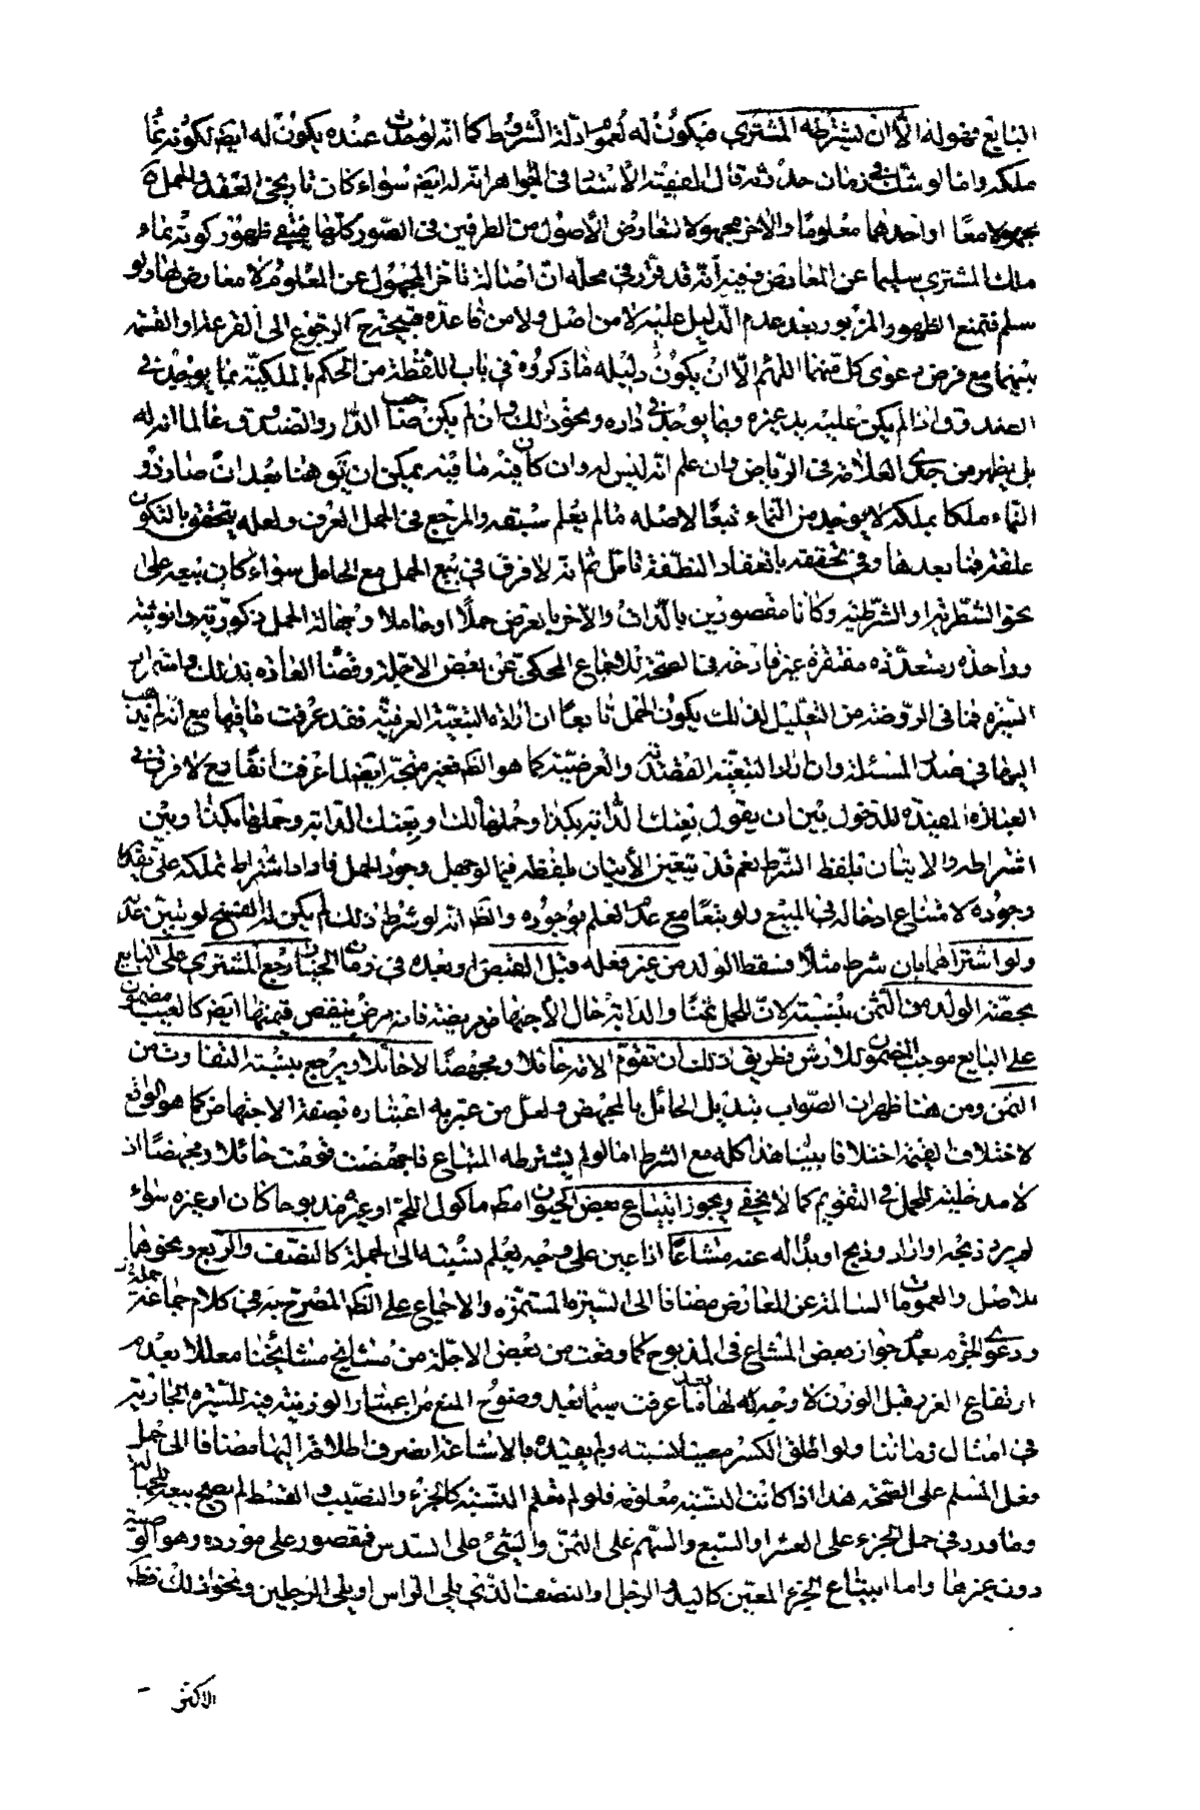 البايع فهو له الا ان يشترطه المشترى فيكون له لعموم ادلة الشروط كما انه لو حدث عنده يكون له ايضا لكونه نماء
ملكه واما لو شك فى زمان حدوثه قال الفقيه الاستاد فى الجواهر انه له ايضا سواء كان تاريخى العقد والحمل
مجهولا معا او احدهما معلوما والاخر مجهولا لتعارض الاصول من الطرفين فى الصور كلها فيبقى ظهور كونه نماء
ملك المشترى سليما عن المعارض وفيه انه قد قرر فى محله ان اصالة تاخر المجهول عن المعلوم لا معارض لها ولو
سلم فنمنع الظهور المزبور بعد عدم الدليل عليه لا من اصل ولا من قاعدة فيتجه ح الرجوع الى القرعة او القسمة
بينهما مع فرض دعوى كل منهما اللهم الا ان يكون دليله ما ذكروه فى باب اللقطة من الحكم بالملكية بما يوجد فى
الصندوق اذا لم يكن عليه يد غيره وبما يوجد فى داره ونحو ذلك وان لم يكن صاحب الدار والصندوق عالما انه له
بل يظهر من جدى العلامة فى الرياض وان علم انه ليس له وان كان فيه ما فيه يمكن ان يق هنا بعد ان صار ذو
النماء ملكا يملكه لا يوجد من النماء تبعا لاصله ما لم يعلم سبقه والمرجع فى الحمل العرف ولعله يتحقق بالتكون
علقة فما بعدها وفى تحققه بانعقاد النطفة تامل ثم انه لا فرق فى بيع الحمل مع الحامل سواء كان بيعه على
نحو الشطرية او الشرطية وكانا مقصودين بالذات والاخر بالعرض حملا او حاملا وجهالة الحمل ذكورته وانوثته
ووحدته وتعدده مغتفرة غير قادحة فى الصحة للاجماع المحكى عن بعض الاجلة وقضاء العادة بذلك واستمرار
السيرة فما فى الروضة من التعليل لذلك بكون الحمل تابعا ان اراد التبعية العرفية فقد عرفت ما فيها مع انه لم يذهب
اليها فى صدر المسئلة وان اراد التبعية القصدية والعرضية كما هو الظ فغير متجه ايضا لما عرفت انفا وح لا فرق فى
العبارة المفيدة للدخول بين ان يقول بعتك الدابة بكذا وحملها لك او بعتك الدابة وحملها بكذا وبين
اشتراطه والاتيان بلفظ الشرط نعم قد يتعين الاتيان بلفظه فيما لو جهل وجود الحمل فاراد اشتراط تملكه على تقدير
وجوده لامتناع ادخاله فى المبيع ولو تبعا مع عدم العلم بوجوده والظ انه لو شرط ذلك لم يكن له الفسخ لو تبين عدمه
ولو اشتراهما بان شرط مثلا فسقط الولد من غير فعله قبل القبض او بعده فى زمان الخيار رجع المشترى على البايع
بحصة الولد من الثمن بنسبته لان للحمل ثمنا والدابة حال الاجهاض مريضة فانه مرض ينقص قيمتها ايضا كالعيب مضمون
على البايع موجب الضمان للارش فطريق ذلك ان تقوم الامة حاملا ومجهضا لا حائلا ويرجع بنسبة التفاوت من
الثمن ومن هنا ظهر ان الصواب تبديل الحائل بالمجهض ولعل من عبر به اعتباره بصفة الاجهاض كما هو الواقع
لاختلاف القيمة اختلافا بينا هذا كله مع الشرط اما لو لم يشترطه المبتاع فاجهضت قومت حائلا ومجهضا اذ
لا مدخلية للحمل فى التقويم كما لا يخفى ويجوز ابتياع بعض الحيوان مط ماكول اللحم او غيره مذبوحا كان او غيره سواء
لم يرد ذبحه او اراد وذبح او بدا له عنه مشاعا اذا عين على وجه يعلم نسبته الى الجملة كالنصف والربع ونحوهما
للاصل والعمومات السالمة عن المعارض مضافا الى السيرة المستمرة والاجماع على الظ المصرح به فى كلام جماعة
ودعوى الجزم بعدم جواز بعض المشاع فى المذبوح كما وقعت من بعض الاجلة من مشايخ مشايخنا معللا بعدم
ارتفاع الغرر قبل الوزن لا وجه له لها بعد ما عرفت سيما بعد وضوح المنع من اعتبار الوزنية فيه للسيرة الجارية
فى امثال زماننا ولو اطلق الكسر معينا لنسبته ولم يقيده بالاشاعة انصرف اطلاقه اليها مضافا الى حمل
فعل المسلم على الصحة هذا اذا كانت النسبة معلومة فلو لم تعلم النسبة كالجزء والنصيب والقسط لم يصح بيعه للجهالة
وما ورد فى حمل الجزء على العشر او السبع والسهم على الثمن والشىء على السدس فمقصور على مورده وهو الوصية
دون غيرها واما ابتياع الجزء المعين كاليد والرجل او النصف الذى يلى الراس او يلى الرجلين ونحو ذلك فظ
الاكثر